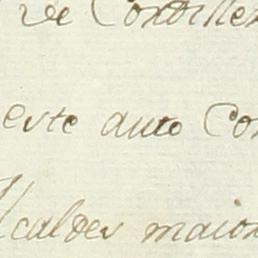 de Cordille
este auto Con
Alcaldes maior